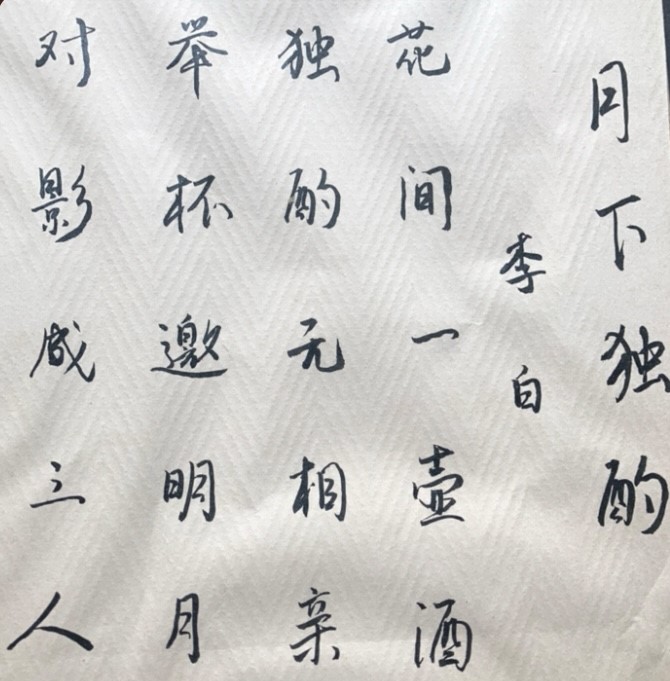 月下独酌
李白
花间一壶酒
独酌无相亲
举杯邀明月
对影成三人